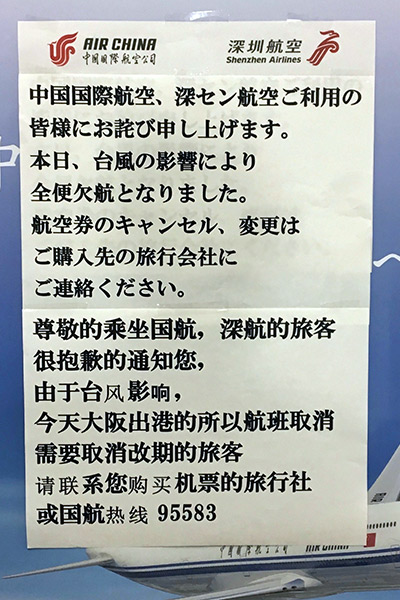 AIR CHINA
中国国际航空公司
深圳航空
Shenzhen Airlines
中国国際航空、深セン航空ご利用の
皆様にお詫び申し上げます。
本日、台風の影響により
全便欠航となりました。
航空券のキャンセル、変更は
ご購入先の旅行会社に
ご連絡ください。
尊敬的乘坐国航，深航的旅客
很抱歉的通知您，
由于台风影响，
今天大阪出港的所以航班取消
需要取消改期的旅客
请联系您购买机票的旅行社
或国航热线 95583
中国国际航空公司 AIR CHINA